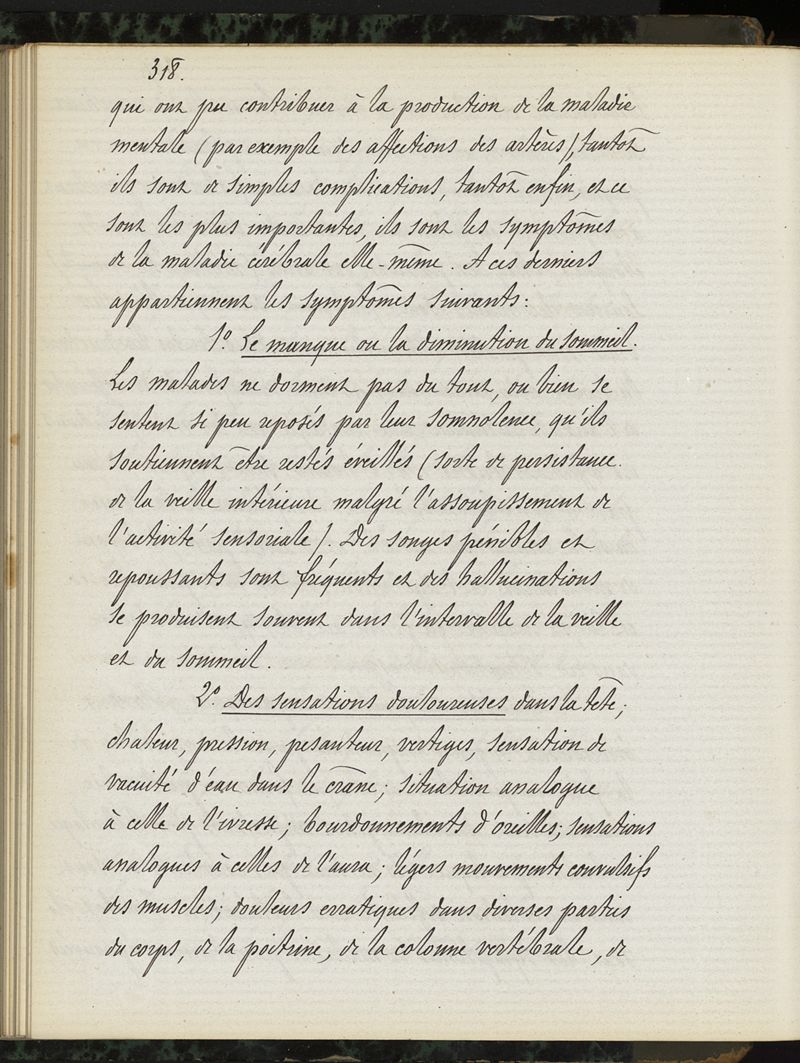 318.
qui ont pu contribuer à la production de la maladie
mentale (par exemple des affections des artères), tantôt
ils sont de simples complications, tantôt enfin, et ce
sont les plus importantes, ils sont les symptômes
de la maladie cérébrale elle-même. A ces derniers
appartiennent les symptômes suivants:
1º. Le manque ou la diminution du sommeil.
Les malades ne dorment pas du tout, ou bien se
sentent si peu reposés par leur somnolence, qu'ils
soutiennent être restés éveillés (sorte de persistance.
de la veille intérieure malgré l'assoupissement de
l'activité sensoriale). Des songes pénibles et
repoussants sont fréquents et des hallucinations
se produisent souvent dans l'intervalle de la veille
et du sommeil.
2º. Des sensations douloureuses dans la tête;
chaleur, pression, pesanteur, vertiges, sensation de
vacuité d'eau dans le crâne; situation analogue
à celle de l'ivresse; bourdonnements d'oreilles; sensations
analogues à celles de l'aura; légers mouvements convulsifs
des muscles; douleurs erratiques dans diverses parties
du corps, de la poitrine, de la colonne vertébrale, de